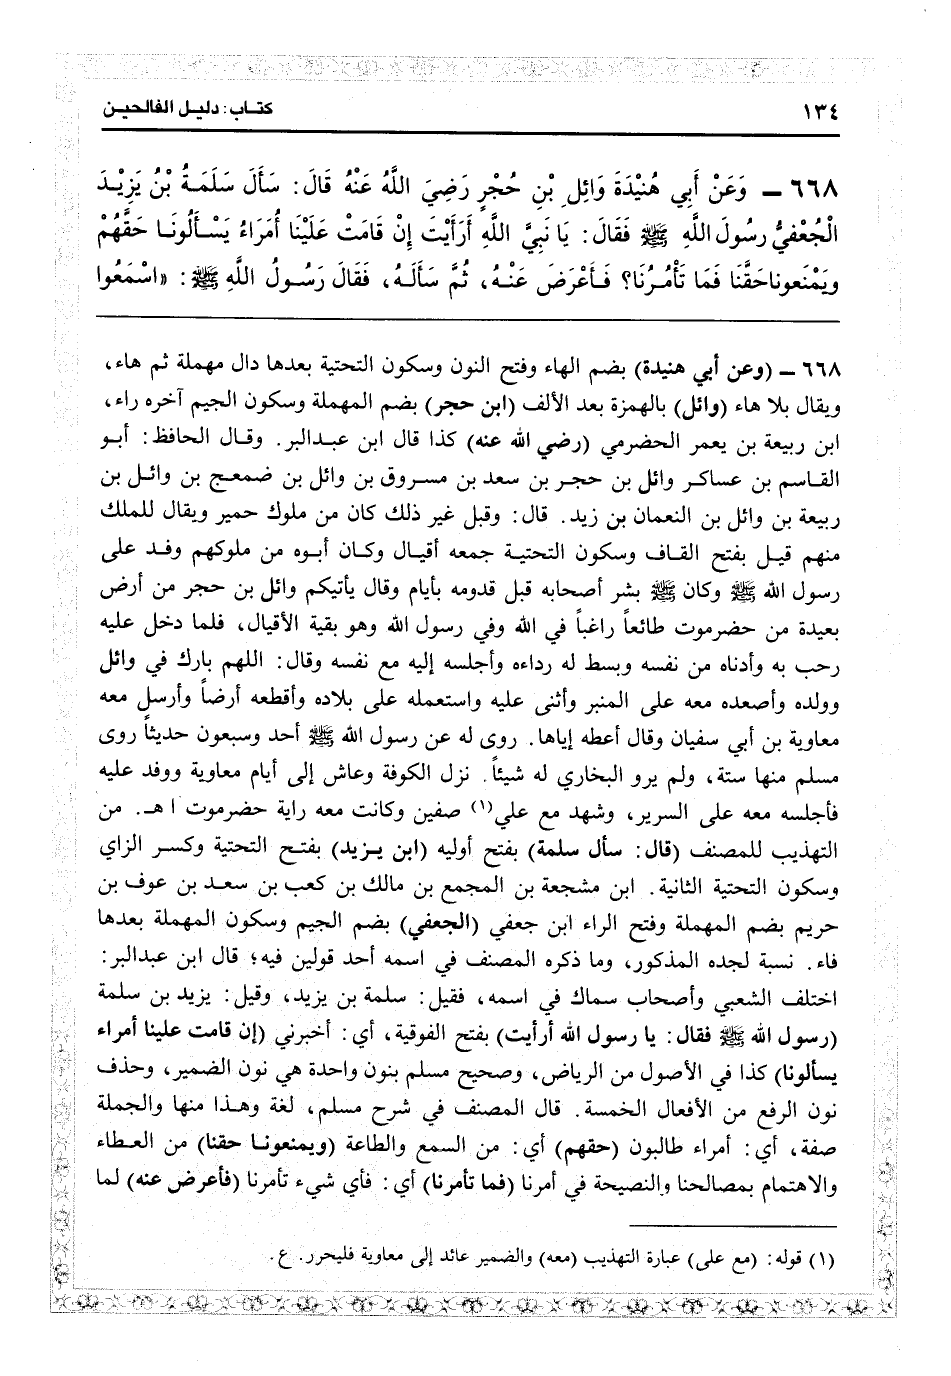 ١٣٤
كتـاب: دليـل الفالحيـن
٦٦٨ ــ وَعَنْ أَبِي هُنَيْدَةَ وَائِلِ بْنِ حُجْرٍ رَضِيَ اللَّهُ عَنْهُ قَالَ: سَأَلَ سَلَمَـةُ بْنُ يَزِيْـدَ
الْجُعْفِيُّ رسُولَ اللَّهِ ﷺ فَقَالَ: يَا نَبِيَّ اللَّهِ أَرَأَيْتَ إِنْ قَامَتْ عَلَيْنَا أُمَرَاءُ يَسْـأَلُونَـا حَقَّهُمْ
ويَمْنَعوناحَقَّنَا فَمَا تَأْمُـرُنَا؟ فَـأَعْرَضَ عَنْـهُ، ثُمَّ سَألَـهُ، فَقَالَ رَسُـولُ اللَّهِ ﷺ: «اسْمَعُوا
٦٦٨ ــ (وعن أبي هنيدة) بضم الهاء وفتح النون وسكون التحتية بعدها دال مهملة ثم هاء،
ويقال بلا هاء (وائل) بالهمزة بعد الألف (ابن حجر) بضم المهملة وسكون الجيم آخره راء،
ابن ربيعة بن يعمر الحضرمي (رضي الله عنه) كذا قال ابن عبـدالبر. وقـال الحافظ: أبـو
القـاسم بن عسـاكـر وائل بن حجـر بن سعد بن مسـروق بن وائل بن ضمعـج بن وائـل بن
ربيعة بن وائل بن النعمان بن زيد. قال: وقيل غير ذلك كان من ملوك حمير ويقال للملك
منهم قيـل بفتح القـاف وسكون التحتيـة جمعه أقيـال وكـان أبـوه من ملوكهم وفـد على
رسول الله ﷺ وكان ﷺ بشر أصحابه قبل قدومه بأيام وقال يأتيكم وائل بن حجر من أرض
بعيدة من حضرموت طائعاً راغباً في الله وفي رسول الله وهو بقية الأقيال، فلما دخل عليه
رحب به وأدناه من نفسه وبسط له رداءه وأجلسه إليه مع نفسه وقال: اللهم بارك في وائل
وولده وأصعده معه على المنبر وأثنى عليه واستعمله على بلاده وأقطعه أرضاً وأرسل معه
معاوية بن أبي سفيان وقال أعطه إياها. روى له عن رسول الله ﷺ أحد وسبعون حديثاً روى
مسلم منها ستة، ولم يرو البخاري له شيئاً. نزل الكوفة وعاش إلى أيام معاوية ووفد عليه
فأجلسه معه على السرير، وشهد مع علي(١) صفين وكانت معه راية حضرموت ا هـ. من
التهذيب للمصنف (قال: سأل سلمة) بفتح أوليه (ابن يـزيد) بفتـح التحتية وكسـر الزاي
وسكون التحتية الثانية. ابن مشجعة بن المجمع بن مالك بن كعب بن سعـد بن عوف بن
حريم بضم المهملة وفتح الراء ابن جعفي (الجعفي) بضم الجيم وسكون المهملة بعدها
فاء. نسبة لجده المذكور، وما ذكره المصنف في اسمه أحد قولين فيه؛ قال ابن عبدالبر:
اختلف الشعبي وأصحاب سماك في اسمه، فقيل: سلمة بن يزيد، وقيل: يزيد بن سلمة
(رسول الله ﷺ فقال: يا رسول الله أرأيت) بفتح الفوقية، أي: أخبرني (إن قامت علينا أمراء
يسألونا) كذا في الأصول من الرياض، وصحيح مسلم بنون واحدة هي نون الضمير، وحذف
نون الرفع من الأفعال الخمسة. قال المصنف في شرح مسلم، لغة وهـذا منها والجملة
صفة، أي: أمراء طالبون (حقهم) أي: من السمع والطاعة (ويمنعونـا حقنا) من العـطاء
والاهتمام بمصالحنا والنصيحة في أمرنا (فما تأمرنا) أي: فأي شيء تأمرنا (فأعرض عنه) لما
(١) قوله: (مع على) عبارة التهذيب (معه) والضمير عائد إلى معاوية فليحرر. ع.